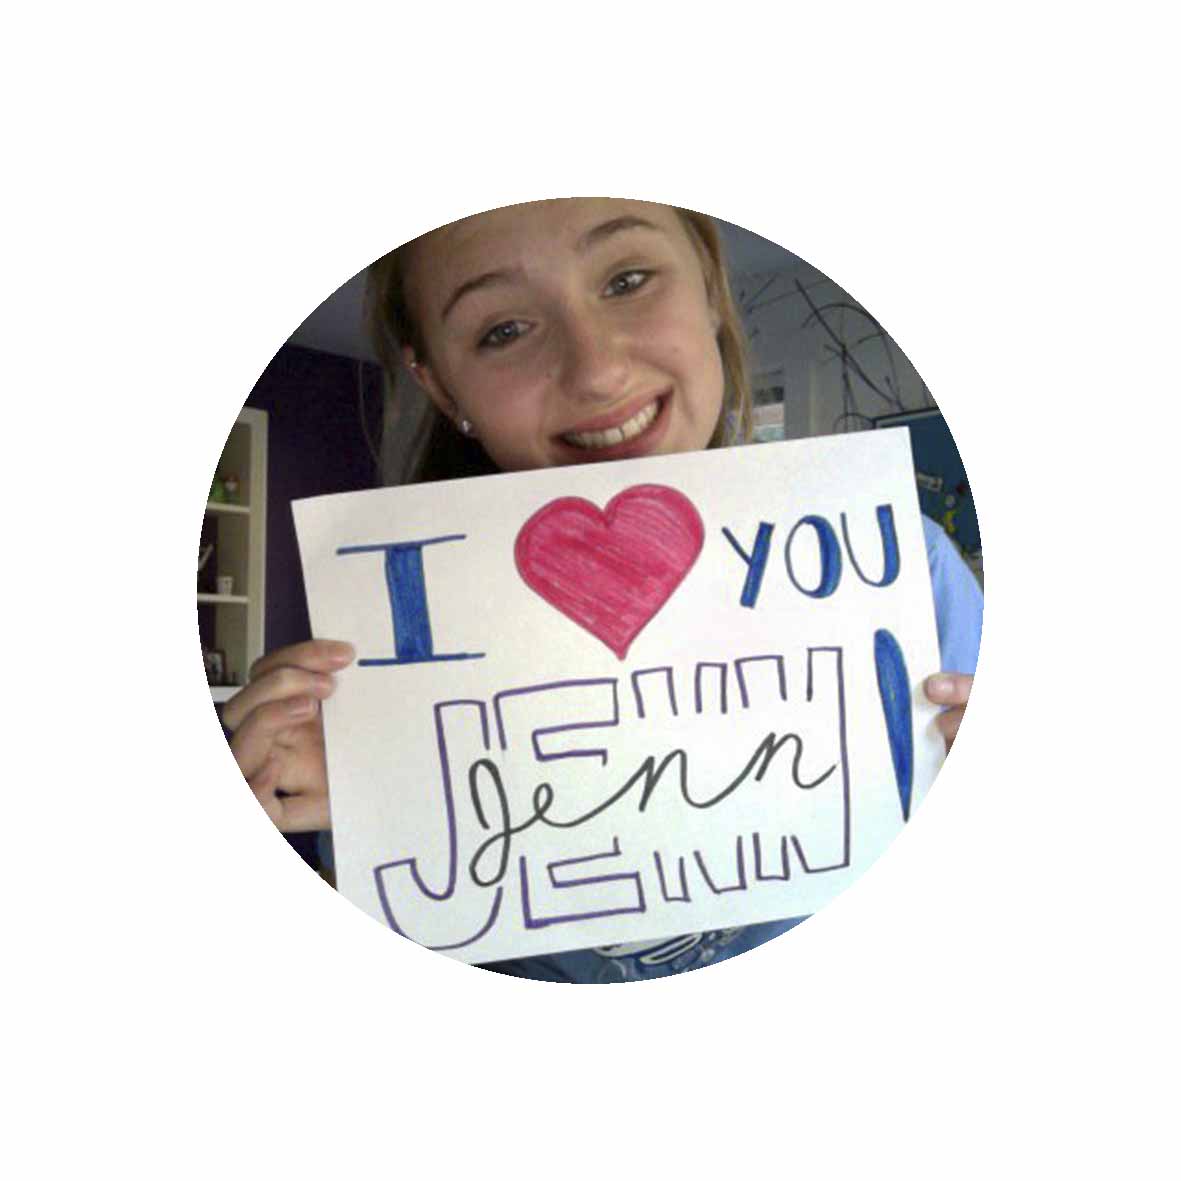 I ❤ YOU
JENN!
Jenn